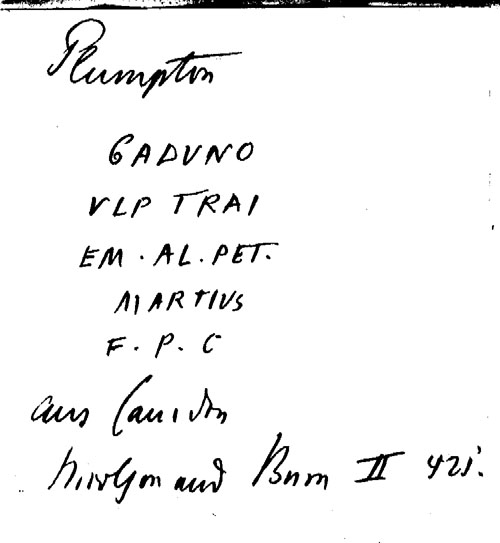 Plumpton
GADVNO
VLP TRAI
EM. AL. PET.
MARTIVS
F. P. C
aus Camden
Nicolson and Burn II 425.